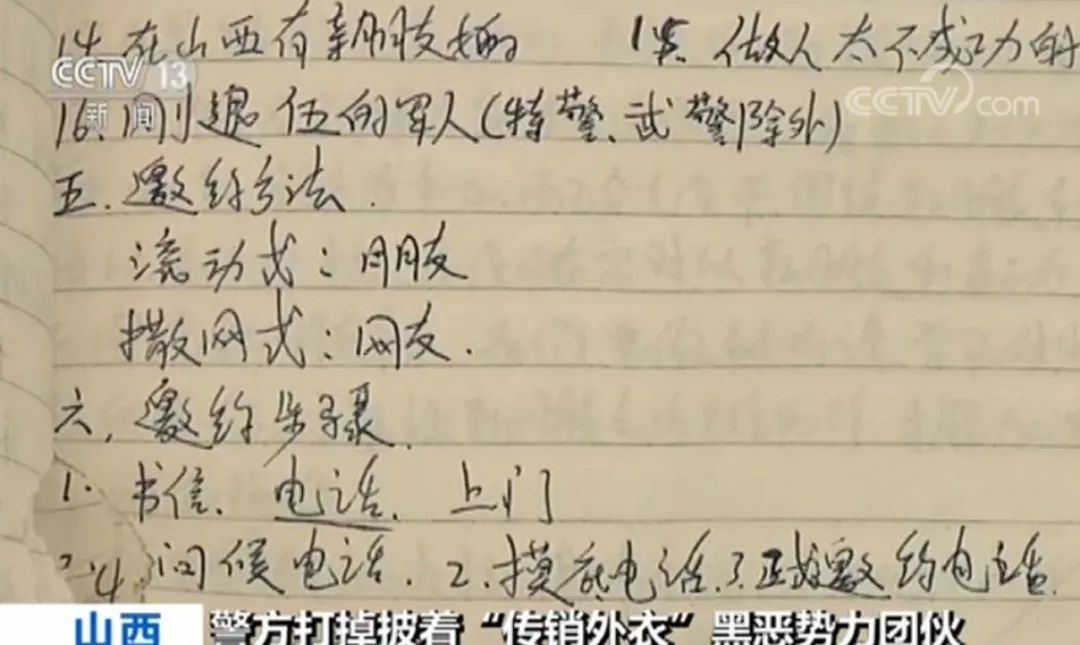 14. 在山西有亲朋友好的 15. 做人太不成功的
CCTV 13
新闻
CCTV.com
16. 刚退伍的军人(特警、武警除外)
五. 邀约方法.
流动式:朋友
撒网式:网友.
六. 邀约步骤.
1. 书信. 电话. 上门
问候电话. 2. 摸底电话. 3. 正式邀约电话.
山西
警方打掉披着“传销外衣”黑恶势力团伙